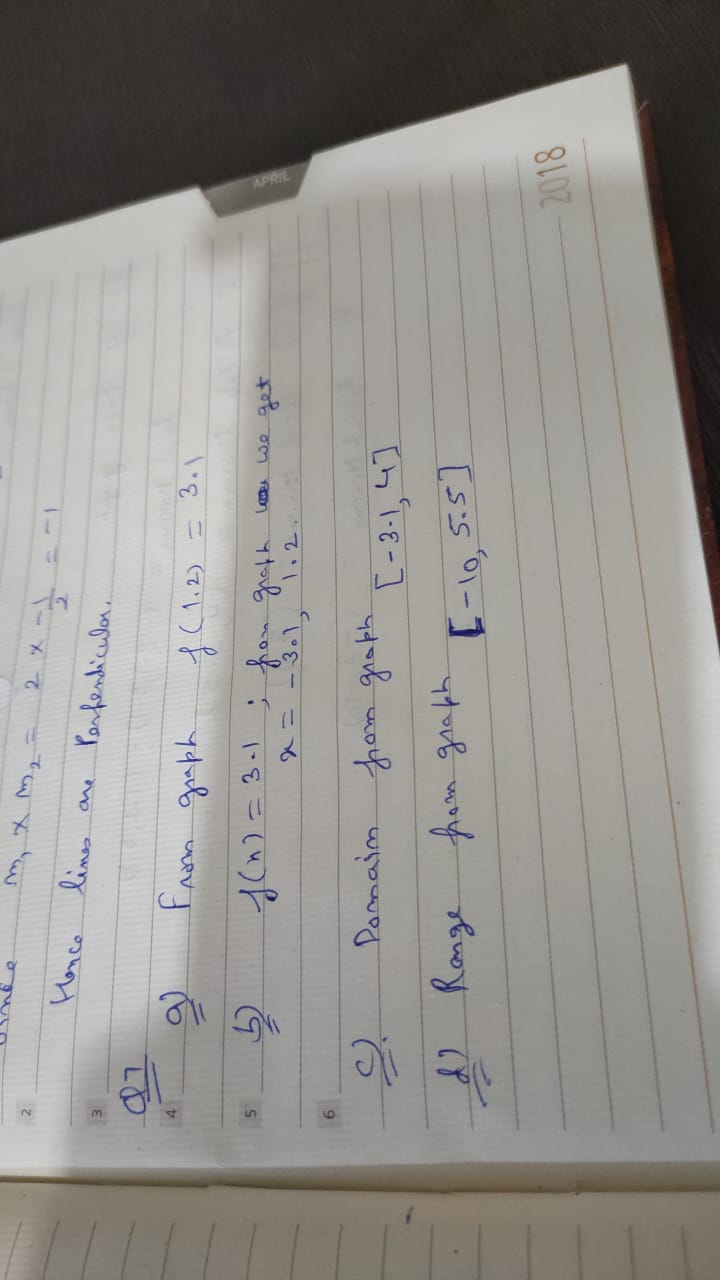 m₁ × m₂ = 2 × -1/2 = -1
2
Hence lines are Perpendicular.
3
Q7
4 a) From graph f(1.2) = 3.1
5 b) f(x) = 3.1 ; from graph we get
x = -3.1, 1.2.
6
c) Domain from graph [-3.1, 4]
d) Range from graph [-10, 5.5]
APRIL
2018